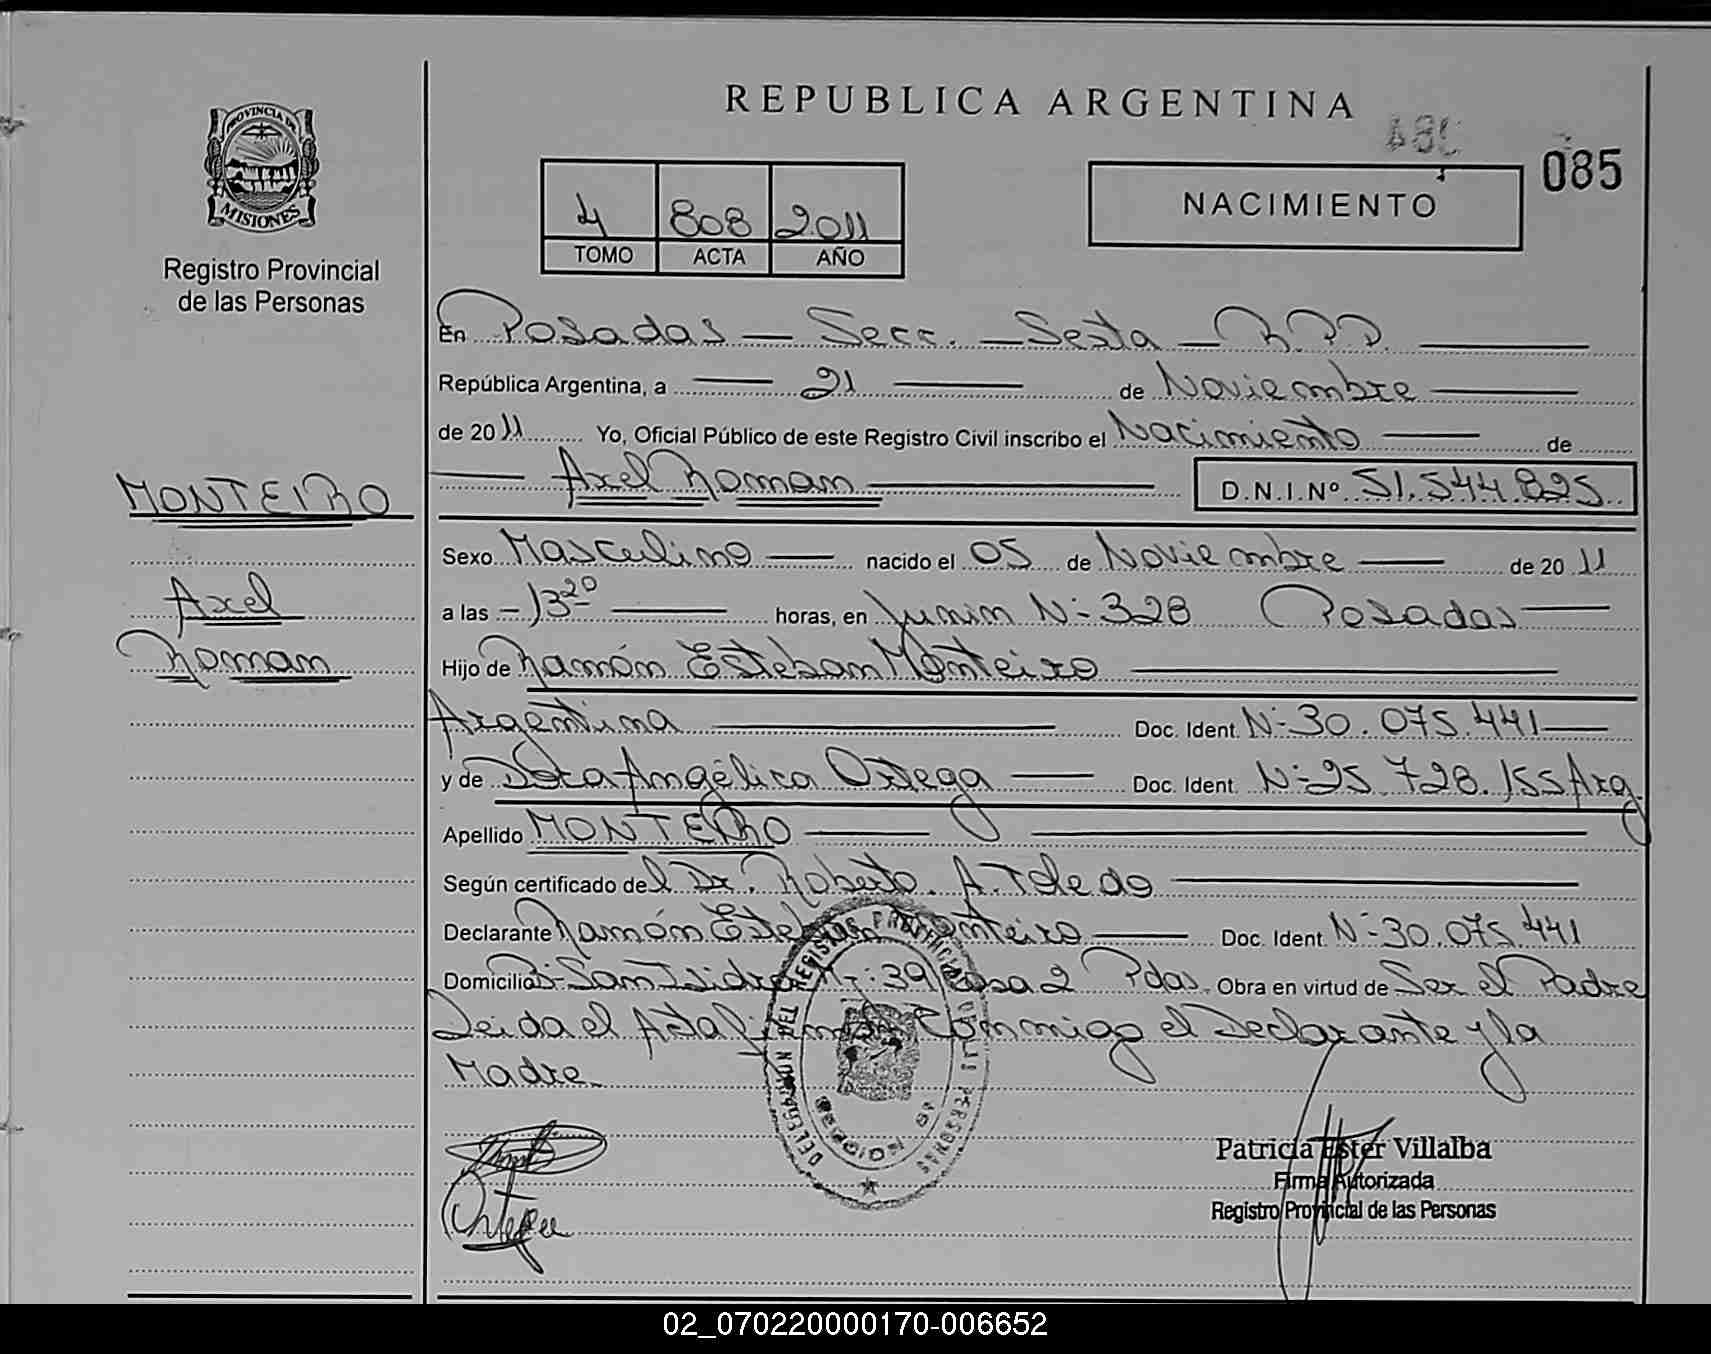 REPUBLICA ARGENTINA
085
PROVINCIA DE
MISIONES
Registro Provincial
de las Personas
4 808 2011
TOMO ACTA AÑO
NACIMIENTO
En Posadas — Secc. — Sexta — R.P.P.
República Argentina, a — 21 — de Noviembre
de 2011 Yo, Oficial Público de este Registro Civil inscribo el Nacimiento — de
— Axel Roman — D.N.I.Nº 51.544.825
MONTEIRO
Axel
Roman
Sexo Masculino — nacido el 05 de Noviembre — de 2011
a las - 13 20 — horas, en Junin Nº 328 Posadas —
Hijo de Ramón Esteban Monteiro —
Argentina — Doc. Ident. Nº 30.075.441 —
y de Angélica Ortega — Doc. Ident. Nº 25.728.155 Arg.
Apellido MONTEIRO —
Según certificado del Dr. Roberto A. Toledo —
Declarante Ramón Esteban Monteiro — Doc. Ident. Nº 30.075.441
Domicilio Bº San Isidro 39 Casa 2 Pdas. Obra en virtud de Ser el Padre
Leida el Acta firman Conmigo el Declarante y la
Madre.
DELEGACION DEL REGISTRO PROVINCIAL DE LAS PERSONAS
Ortega
Patricia Ester Villalba
Firma Autorizada
Registro Provincial de las Personas
02_070220000170-006652